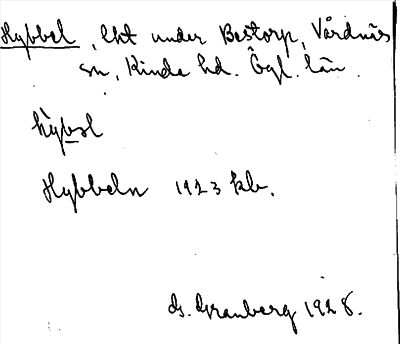 Hybbel, lht under Bestorp, Vårdnäs
sn, Kinda hd. Ögl. län.
hỳbəl
Hybbeln 1923 kb.
G. Granberg 1928.